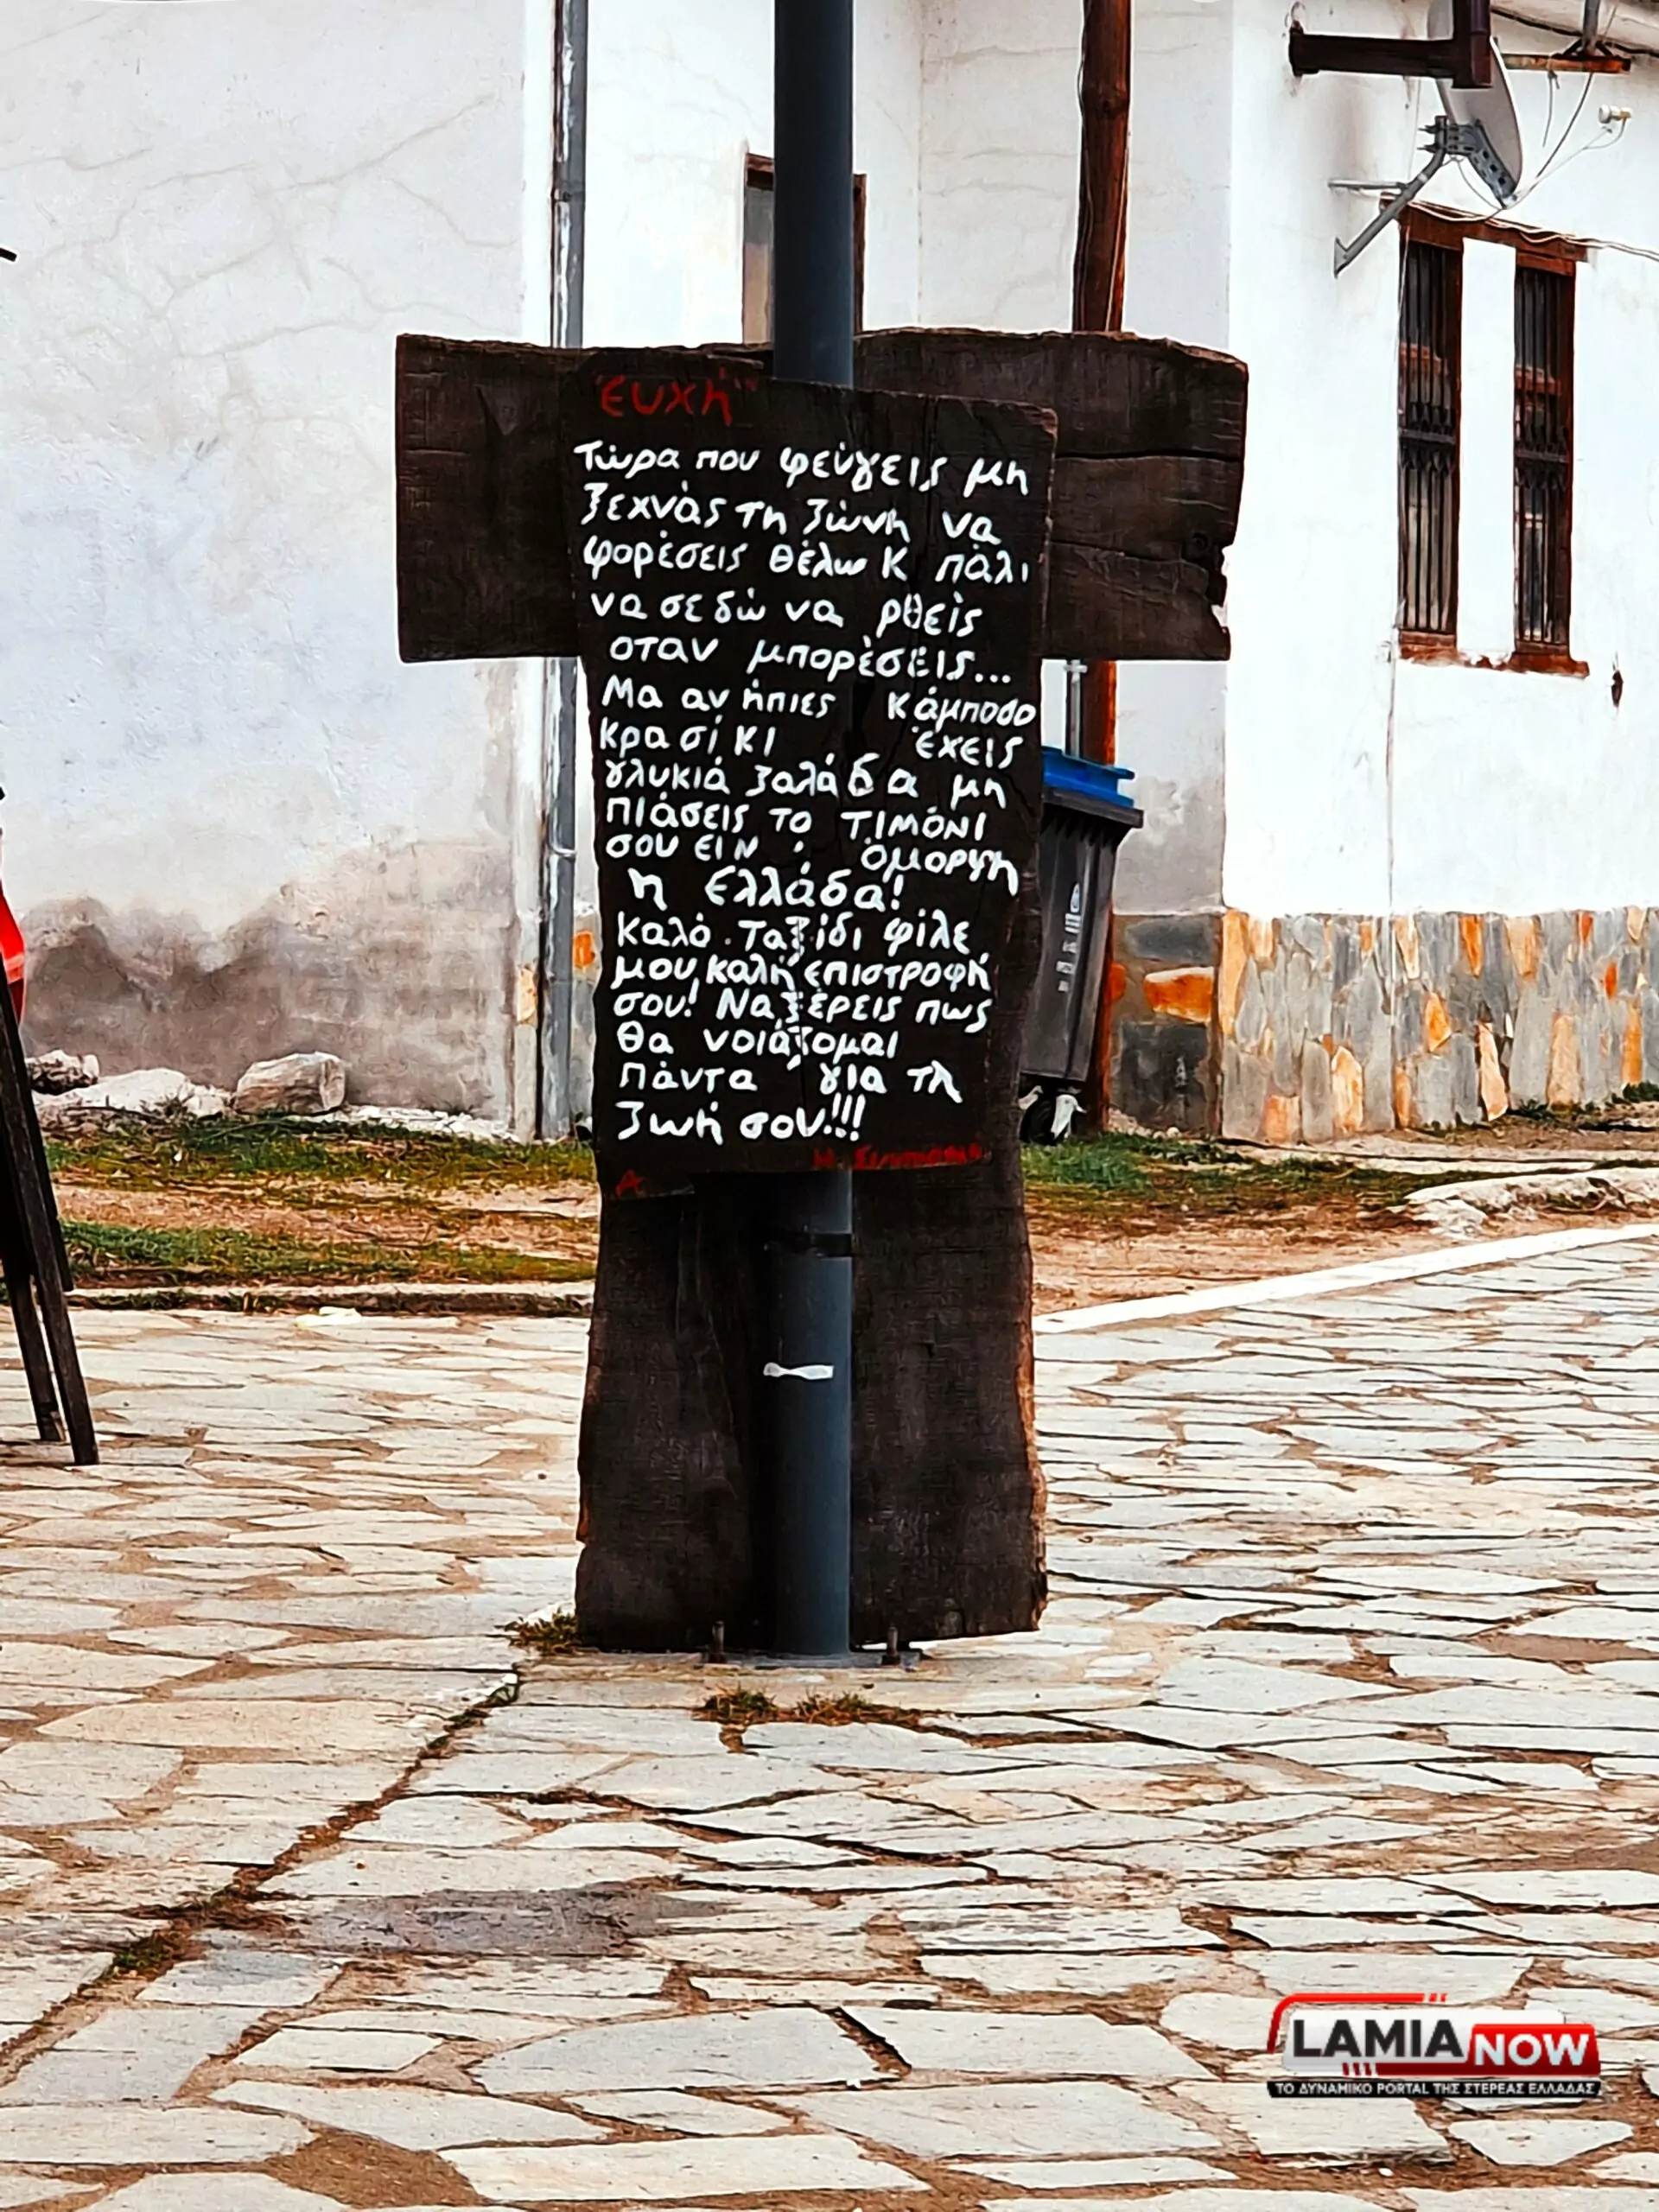 "ευχή"
Τώρα που φεύγεις μη
ξεχνάς τη ζώνη να
φορέσεις θέλω Κ πάλι
να σε δώ να ρθείς
οταν μπορέσεις...
Μα αν ήπιες κάμποσο
κρασί κι έχεις
γλυκιά ζαλάδα μη
πιάσεις το τιμόνι
σου ειν όμορφη
η ελλάδα!
καλό ταξίδι φίλε
μου καλή επιστροφή
σου! Να ξέρεις πως
θα νοιάζομαι
πάντα για τη
ζωή σου!!!
Α
LAMIA NOW
ΤΟ ΔΥΝΑΜΙΚΟ PORTAL ΤΗΣ ΣΤΕΡΕΑΣ ΕΛΛΑΔΑΣ